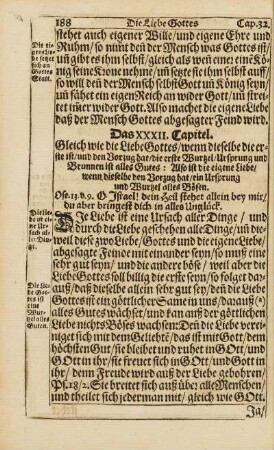 188 Die Liebe Gottes Cap. 32.
stehet auch eigener Wille / und eigene Ehre und
Ruhm / so nim̃t deñ der Mensch was Gottes ist /
uñ gibt es ihm selbst / gleich als weñ einer einē Kö-
nig seine Krone nehme / uñ setzte sie ihm selbst auf /
so will deñ der Mensch selbst Gott uñ König seyn /
uñ fähet ein eigen Reich an wider Gott / uñ strei-
tet im̃er wider Gott. Also machet die eigen Liebe
daß der Mensch Gottes abgesagter Feind wird.
Die eige-
Liebe
setzet
sich an
Gottes
Statt.
Das XXXII. Capitel.
Gleich wie die Liebe Gottes / wenn dieselbe die er-
ste ist / und den Vorzug hat / die erste Wurtzel / Ursprung und
Brunnen ist alles Gutes: Also ist die eigene Liebe /
wenn dieselbe den Vorzug hat / ein Ursprung
und Wurtzel alles Bösen.
Ose. 13. v. 9. O Israel! dein Heil stehet allein bey mir /
du aber bringest dich in alles Unglück.
Die Liebe ist eine Ursach aller Dinge / und
durch die Liebe geschehen alle Dinge / uñ die-
weil diese zwo Liebe / Gottes und die eigen Liebe /
abgesagte Feinde unter einander seyn / so muß eine
sehr gut seyn / und die andere böse / weil aber die
Liebe Gottes soll billig die erste seyn / so folget dar-
auß / daß dieselbe allein sehr gut sey / deñ die Liebe
Gottes ist ein göttlicher Same in uns / darauß (a)
alles Gutes wächset / und kan auß der göttlichen
Liebe nichts Böses wachsen: Deñ die Liebe verei-
niget sich mit dem Geliebtē / das ist mit Gott / dem
höchsten Gut / sie bleibet und ruhet in GOtt / und
GOtt in ihr / sie freuet sich in GOtt / und GOtt in
ihr / denn Freude wird auß der Liebe gebohren /
Ps. 18 / 2. Sie breitet sich auß über alle Menschen /
und theilet sich jederman mit / gleich wie GOtt.
Die Liebe Got-
tes ist
eine
Wur-
tzel alles
Guten.
Ja /